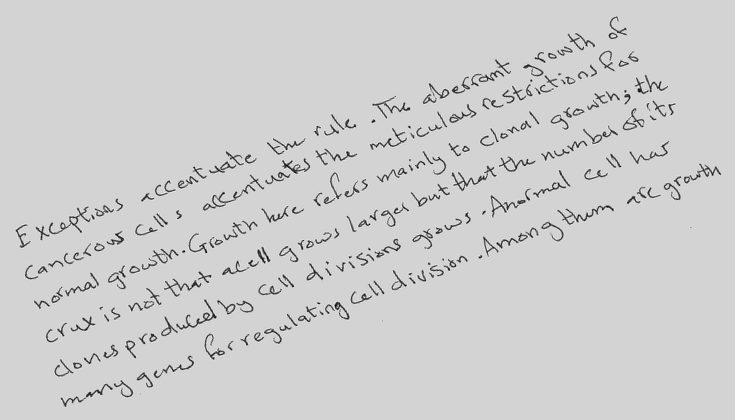 Exceptions accentuate the rule. The aberrant growth of
cancerous cells accentuates the meticulous restrictions for
normal growth. Growth here refers mainly to clonal growth; the
crux is not that a cell grows larger but that the number of its
clones produced by cell divisions grows. A normal cell has
many genes for regulating cell division. Among them are growth